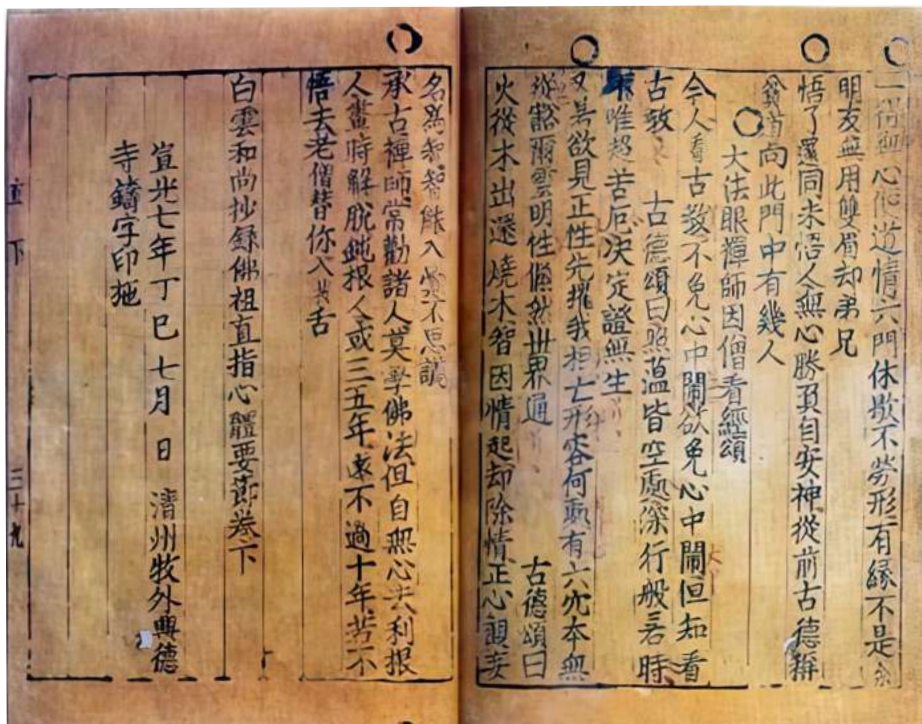 一得無心便道情六門休歇不勞形有緣不是余
明友無用雙眉却弟兄
悟了還同未悟人無心勝負自安神從前古德稱
貧道向此門中有幾人
大法眼禪師因僧看經頌
今人看古教不免心中鬧欲免心中鬧但知看
古教 古德頌曰照薀皆空處深行般若時
唯超苦厄决定證無生
又若欲見正性先摧我相亡形容何處有六穴本無
從豁爾靈明性翛然世界通 古德頌曰
火從木出還燒木智因情起却除情正心觀妄
名爲智智能入處不思議
承古禪師常勸諸人莫學佛法但自無心去利根
人晝時解脫鈍根人或三五年遠不過十年若不
悟去老僧替你入 舌
白雲和尚抄錄佛祖直指心體要節卷下
宣光七年丁巳七月 日 清州牧外興德
寺鑄字印施
直 下 三十九